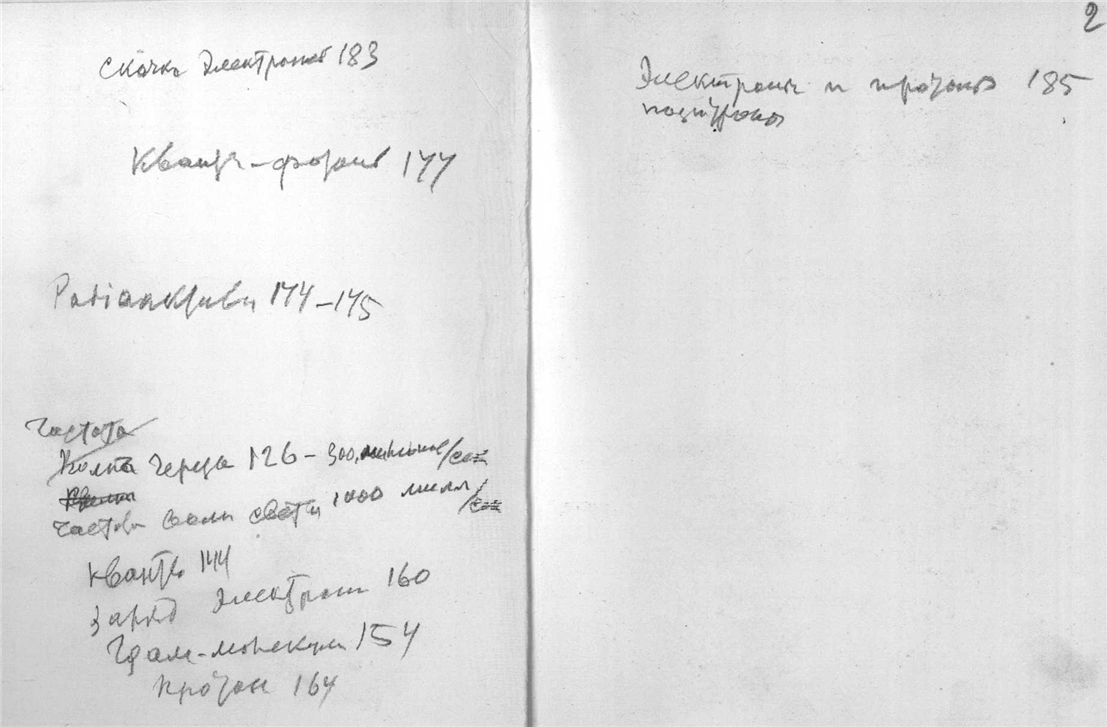 скачки электронов 183
Кванты-фотоны 177
Радіоактивн 174-175
Частота
Волна Герца 126 - 300.миллионов/сек
частота волн света 1000 милл/сек
кванты 144
заряд электрона 160
Грам-молекула 154
протон 164
2
Электроны и протоны 185
позитроны